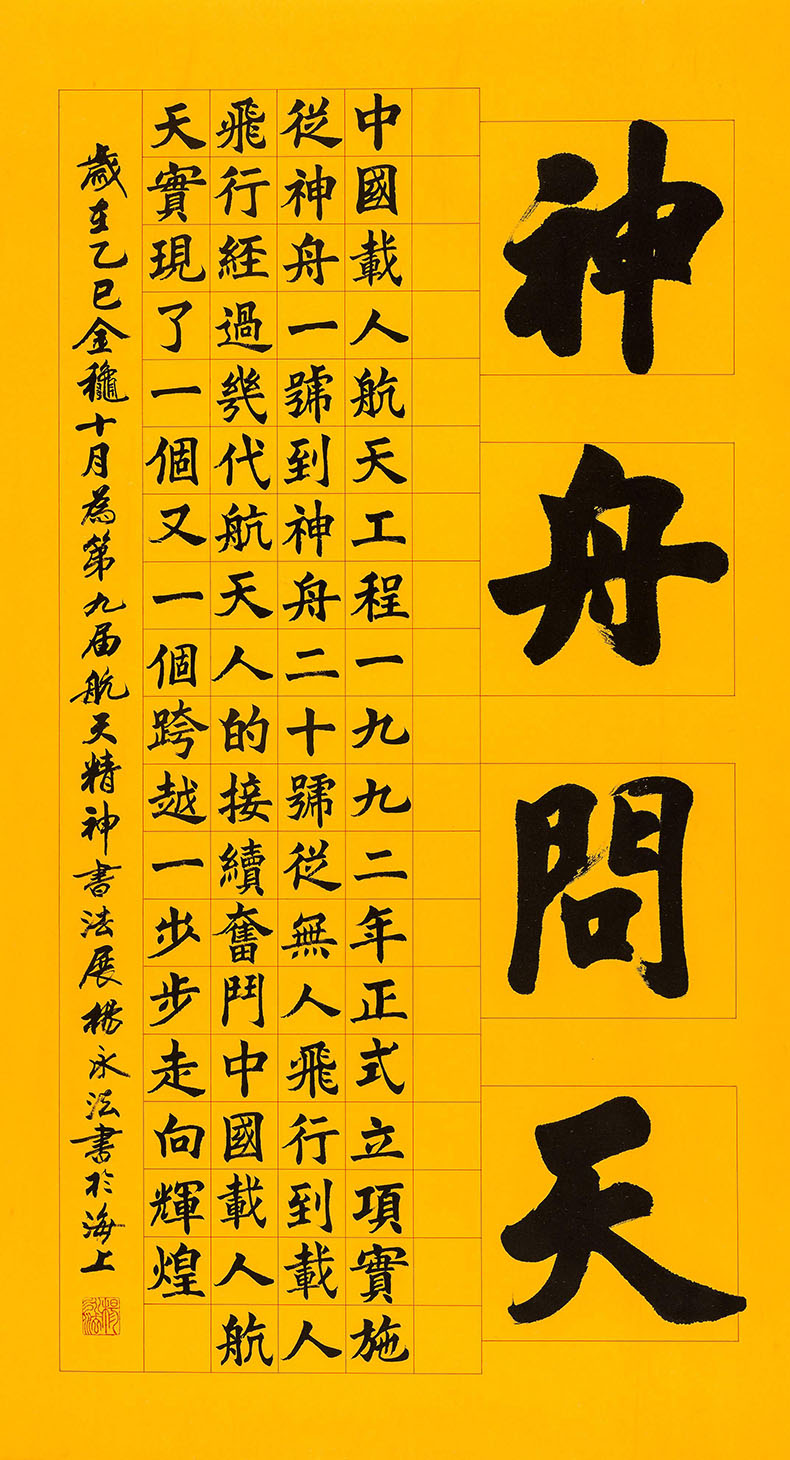 神舟問天
中國載人航天工程一九九二年正式立項實施
從神舟一號到神舟二十號從無人飛行到載人
飛行經過幾代航天人的接續奮鬥中國載人航
天實現了一個又一個跨越一步步走向輝煌
歲在乙巳金龝十月為第九届航天精神書法展楊永法書於海上
楊永法